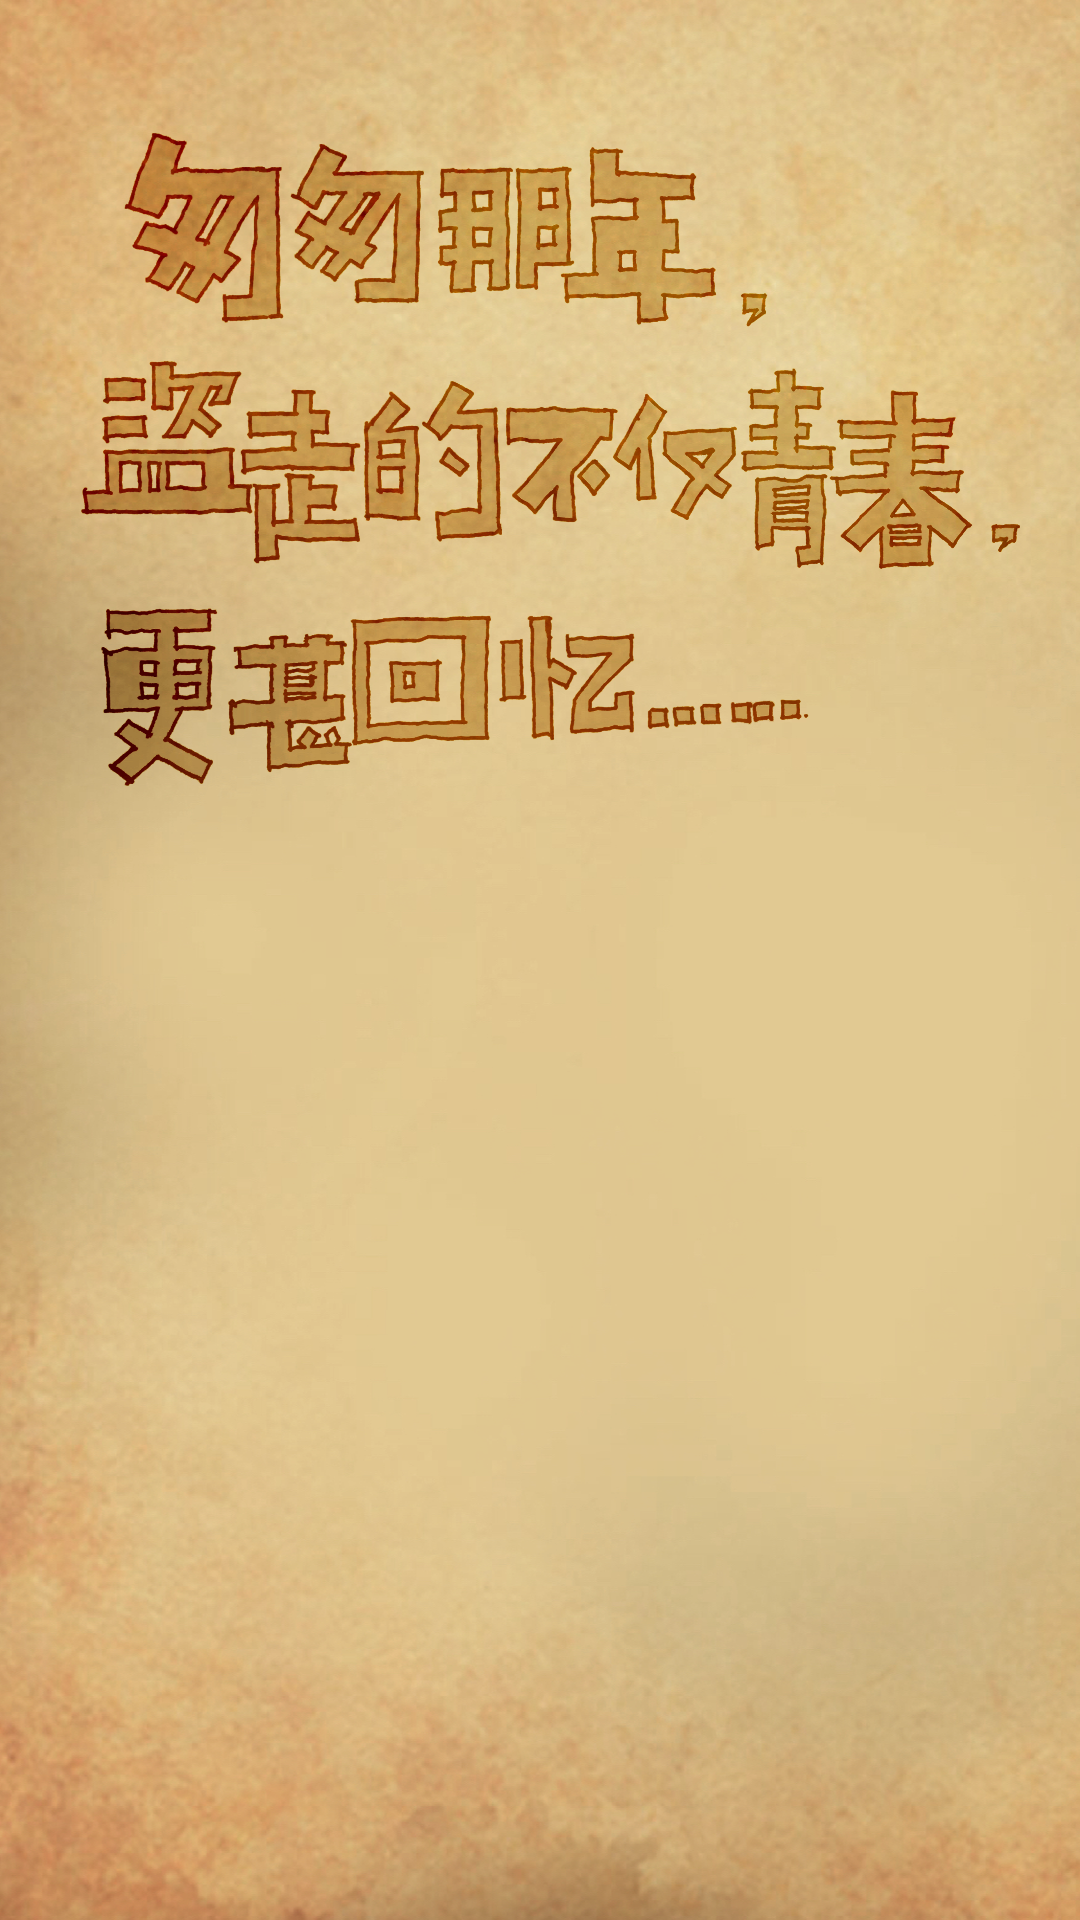 匆匆那年，
盗走的不仅青春，
更甚回忆……